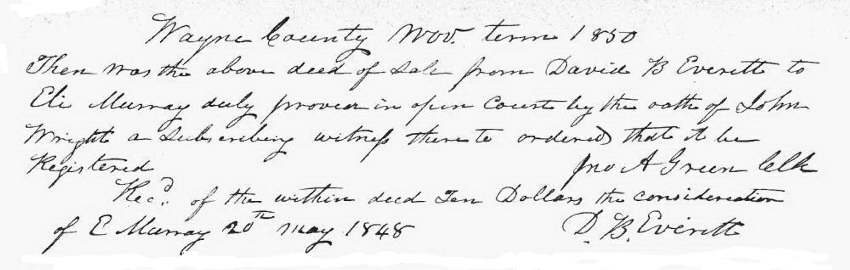 Wayne County Nov. term 1850
Then was the above deed of Sale from David B Everett to
Eli Murray duly proven in open Court by the oath of John
Wright a Subscribing witness thereto ordered that it be
Registered Jno A Green Clk
Recd. of the within deed Ten Dollars the consideration
of E Murray 20th May 1848 D. B. Everett